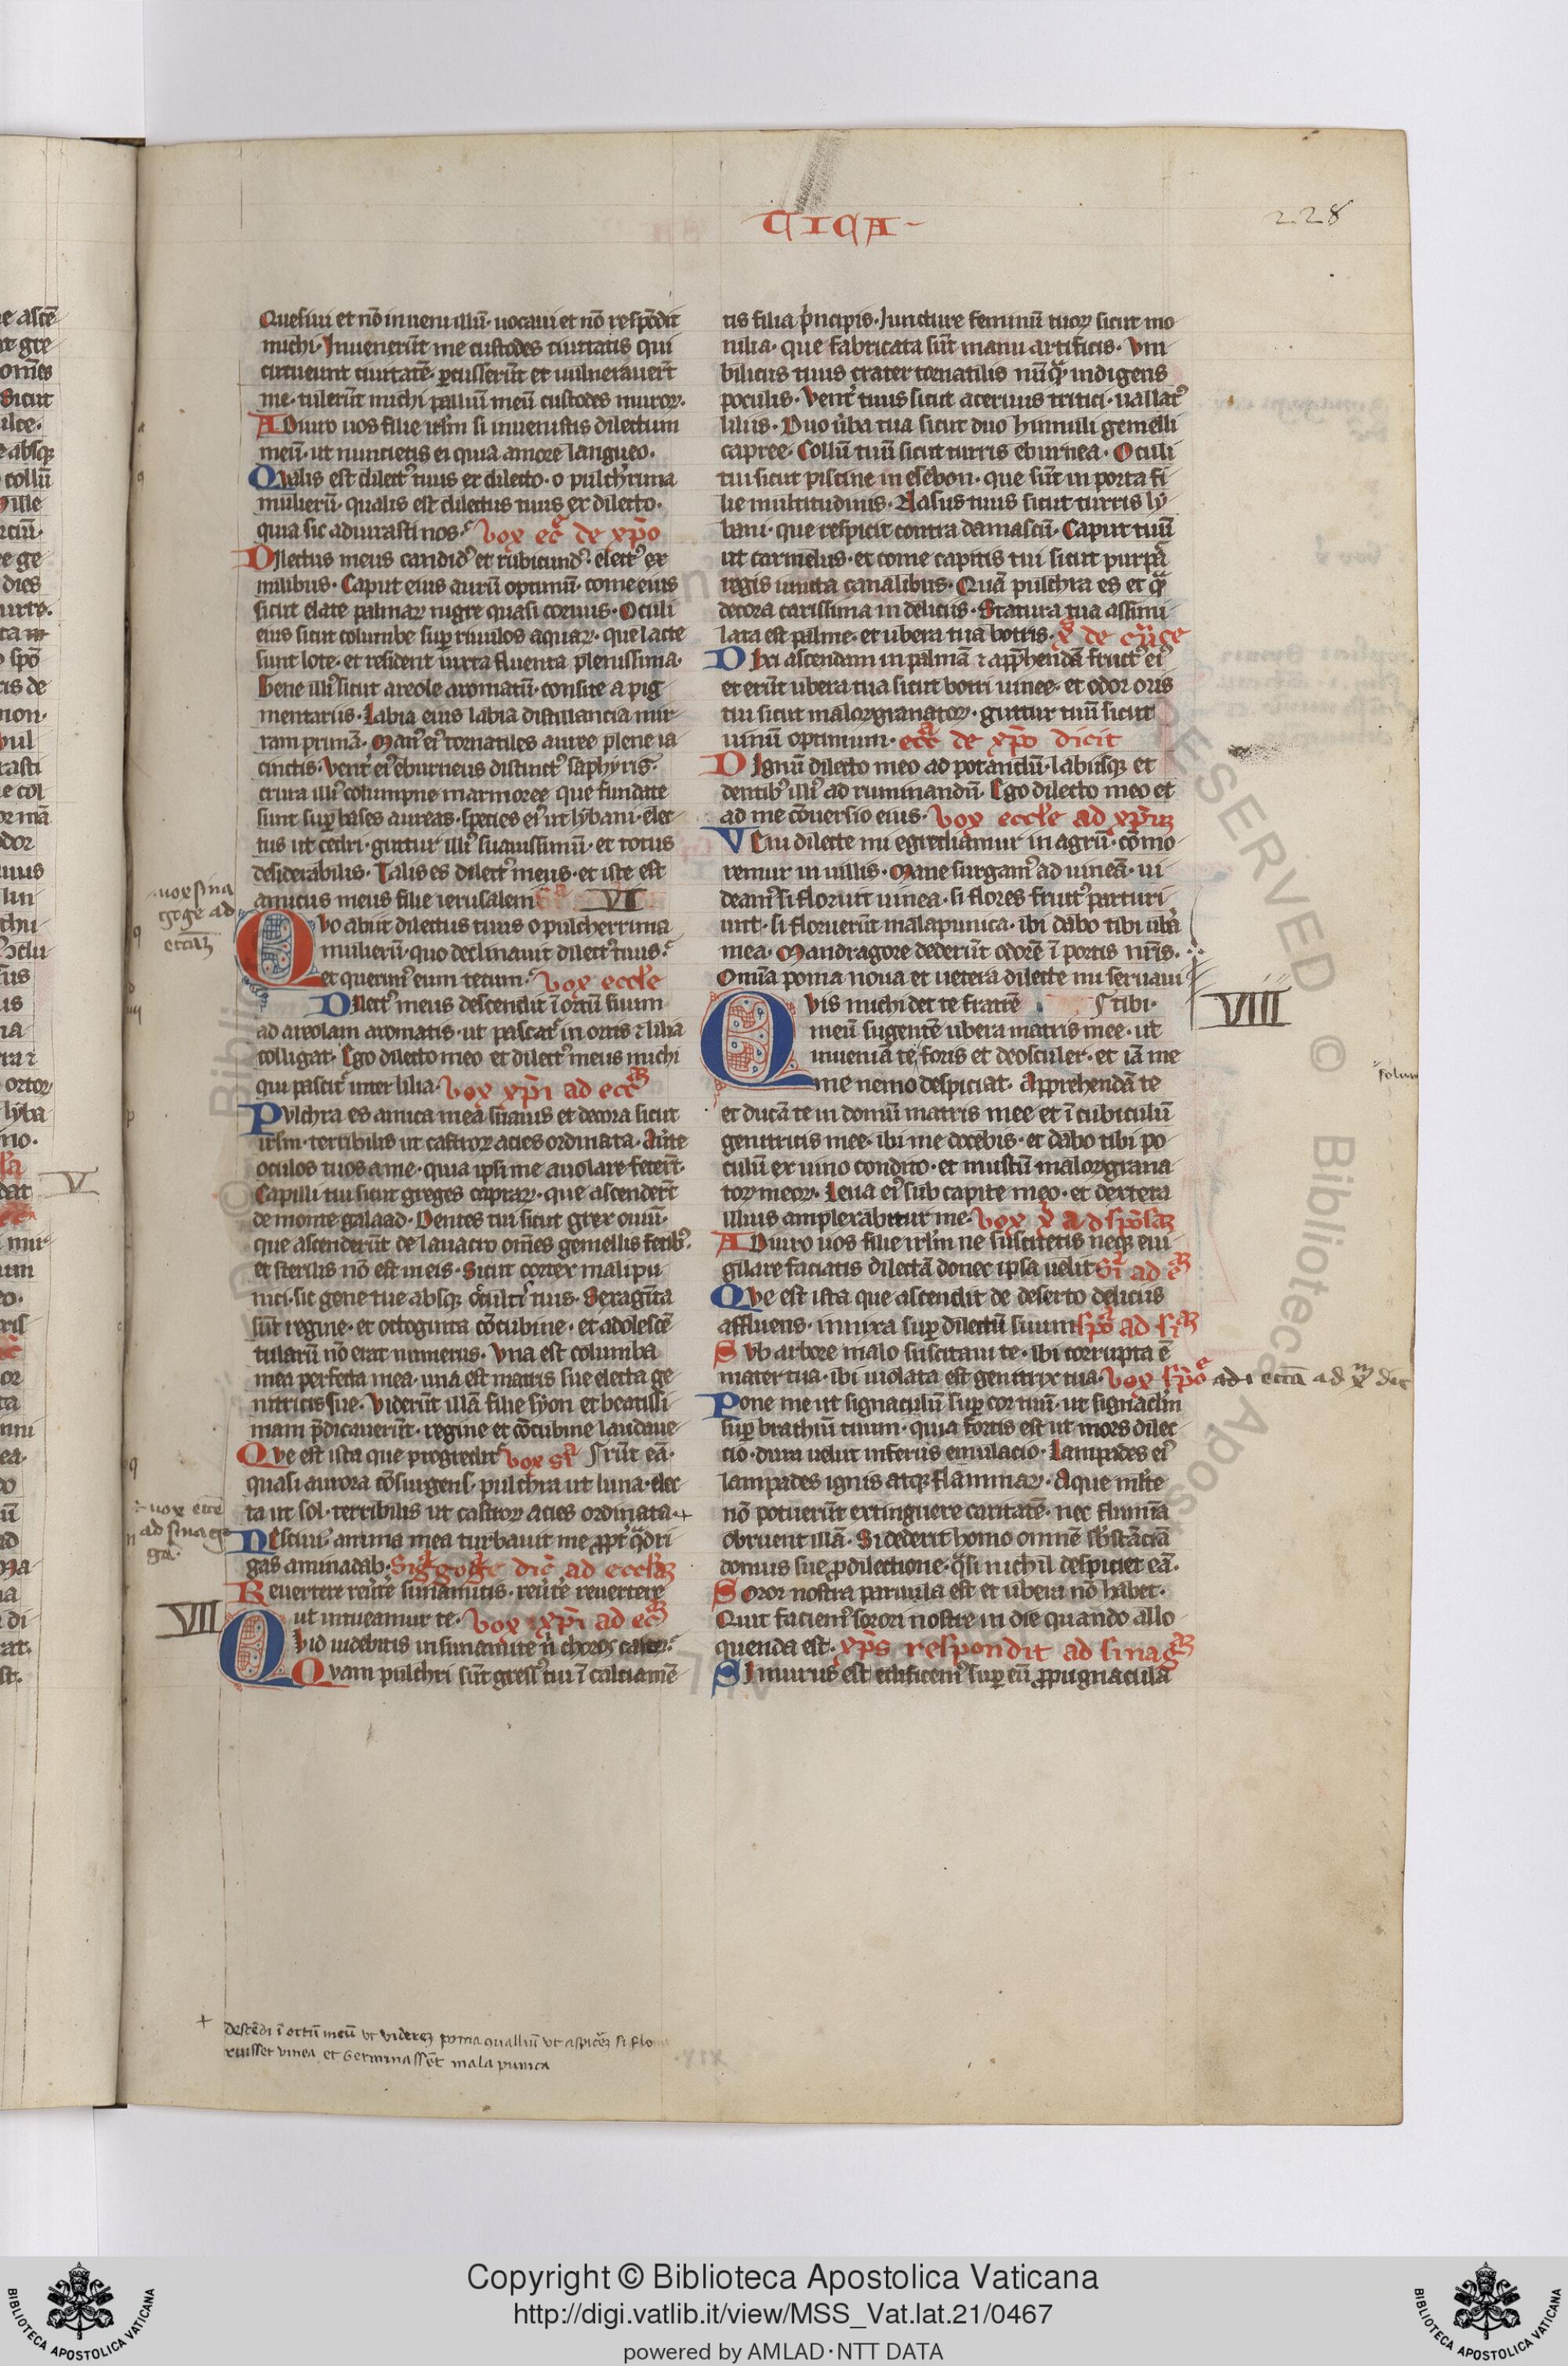 CICA
228
Quesiui et nō inueni illū· uocaui et nō respōdit
michi· Inuenerūt me custodes ciuitatis qui
circueunt ciuitatē· ꝑcusserūt et uulnerauerūt
me· tulerūt michi palliū meū custodes muroꝝ·
ADiuro uos filie irl̄m si inueneritis dilectum
meū· ut nuncietis ei quia amore langueo·
Qualis est dilectꝰ tuus ex dilecto· o pulcherrima
mulierū· qualis est dilectus tuus ex dilecto·
quia sic adiurasti nos· vox ecc̄ de xp̄o
DIlectus meus candidꝰ et rubicundꝰ· electꝰ ex
milibus· Caput eius aurū optimū· come eius
sicut elate palmaꝝ nigre quasi coruus· Oculi
eius sicut columbe suꝑ riuulos aquaꝝ· que lacte
sunt lote· et resident iuxta fluenta plenissima·
Gene illiꝰ sicut areole aromatū· consite a pig
mentariis· Labia eius labia distillancia mir
ram primā· Manꝰ eiꝰ tornatiles auree plene ia
cinctis· Ventͬ eiꝰ eburneus distinctꝰ saphyris·
crura illiꝰ columpne marmoree que fundate
sunt suꝑ bases aureas· species eiꝰ ut lybani· elec
tus ut cedri· guttur illiꝰ suauissimū· et totus
desiderabilis· Talis es dilectꝰ meus· et iste est
amicus meus filie ierusalem VI
uox sina
goge ad
ecclā
QVo abiit dilectus tuus o pulcherrima
mulierū· quo declinauit dilectꝰ tuus·
et queremꝰ eum tecum· vox eccl̄e
DIlectꝰ meus descendit ī ortū suum
ad areolam aromatis· ut pascatͬ in ortis ⁊ lilia
colligat· Ego dilecto meo et dilectꝰ meus michi
qui pascitͬ inter lilia· vox xp̄i ad eccām
PVlchra es amica mea suauis et decora sicut
irl̄m· terribilis ut castroꝝ acies ordinata· Auerte
oculos tuos a me· quia ipsi me auolare fecerūt·
Capilli tui sicut greges capraꝝ· que ascenderūt
de monte galaad· Dentes tui sicut grex ouiū·
que ascenderūt de lauacro om̄es gemellis fetibꝰ·
et sterilis nō est in eis· Sicut cortex mali pu
nici· sic gene tue absqꝫ occultis tuis· Sexaginta
sūt regine· et octoginta cōcubine· et adolescē
tularū nō erat numerus· Vna est columba
mea perfecta mea· una est matris sue electa ge
nitricis sue· Viderūt illā filie syon et beatissi
mam p̄dicauerūt· regine et cōcubine laudaue
Que est ista que progreditͬ vox sī rūt eā·
quasi aurora cōsurgens· pulchra ut luna· elec
ta ut sol· terribilis ut castroꝝ acies ordinata· +
uox eccē
ad sinago
ga·
NEsciui· anima mea turbauit me ꝓptͬ q̄dri
gas aminadab· Sinagoge dic̄ ad eccl̄am
REuertere reuertere sunamitis· reuertere reuertere
ut intueamur te· vox xp̄i ad eccām
VII
QVid uidebitis in sunamite n̄ choros castroꝝ
Quam pulchri sūt gressꝰ tui ī calciamē
+ descēdi ī ortū meū vt viderē poma qualliū vt aspicerē si flo
ruisset vinea et Germinassēt mala punica
tis filia principis· Iuncture feminū tuoꝝ sicut mo
nilia· que fabricata sūt manu artificis· Vm
bilicus tuus crater tornatilis nūquā indigens
poculis· Ventͬ tuus sicut aceruus tritici· uallatꝰ
liliis· Duo ubera tua sicut duo hinnuli gemelli
capree· Collū tuū sicut turris eburnea· Oculi
tui sicut piscine in esebon· que sūt in porta fi
lie multitudinis· Nasus tuus sicut turris ly
bani· que respicit contra damascū· Caput tuū
ut carmelus· et come capitis tui sicut purpā
regis uincta canalibus· Quā pulchra es et quā
decora carissima in deliciis· Statura tua assimi
lata est palme· et ubera tua botris· xp̄s de cruce
DIxi ascendam in palmā ⁊ app̄hendā fructꝰ eiꝰ
et erūt ubera tua sicut botri uinee· et odor oris
tui sicut maloꝝ granatoꝝ· guttur tuū sicut
uinū optimum· eccā de xp̄o dicit
DIgnū dilecto meo ad potandū· labiisqꝫ et
dentibꝰ illiꝰ ad ruminandū· Ego dilecto meo et
ad me cōuersio eius· vox eccl̄e ad xp̄m
VEni dilecte mi egrediamur in agrū· cōmo
remur in uillis· Mane surgamꝰ ad uineā· ui
deamꝰ si floruit uinea· si flores fructꝰ parturi
unt· si floruerūt mala punica· ibi dabo tibi ubera
mea· Mandragore dederūt odorē ī portis nr̄is·
Omia poma noua et uetera dilecte mi seruaui
tibi·
VIII
QVis michi det te fratrē
meū sugentē ubera matris mee· ut
inueniā te foris et deosculer· et iā me
me nemo despiciat· Apprehendā te
et ducā te in domū matris mee et ī cubiculū
genitricis mee· ibi me docebis· et dabo tibi po
culū ex uino condito· et mustū maloꝝ grana
toꝝ meoꝝ· Leua eiꝰ sub capite meo· et dextera
illius amplexabitur me· vox xp̄i ad spōsam
ADiuro uos filie irl̄m ne suscitetis neqꝫ eui
gilare faciatis dilectā donec ipsa uelit Sī ad ēam
QVe est ista que ascendit de deserto deliciis
affluens· innixa suꝑ dilectū suum spō ad sīam
SVb arbore malo suscitaui te· ibi corrupta ē
mater tua· ibi uiolata est genitrix tua· vox spōe ad ecclā ad xm dic
Pone me ut signaculū suꝑ cor tuū· ut signaclm
suꝑ brachiū tuum· quia fortis est ut mors dilec
cio· dura uelut inferus emulacio· Lampades eiꝰ
lampades ignis atqꝫ flammaꝝ· Aque multe
nō potuerūt extinguere caritatē· nec flumīa
obruent illā· Si dederit homo omnē sbstāciā
domus sue ꝓ dilectione· qͣsi nichil despiciet eā·
Soror nostra paruula est et ubera nō habet·
Quit faciemꝰ sorori nostre in die quando allo
quenda est· xp̄s respondit ad sinagām
SI murus est edificemꝰ suꝑ eū ꝓpugnacula
V
Copyright © Biblioteca Apostolica Vaticana
http://digi.vatlib.it/view/MSS_Vat.lat.21/0467
powered by AMLAD·NTT DATA
BIBLIOTECA APOSTOLICA VATICANA
BIBLIOTECA APOSTOLICA VATICANA